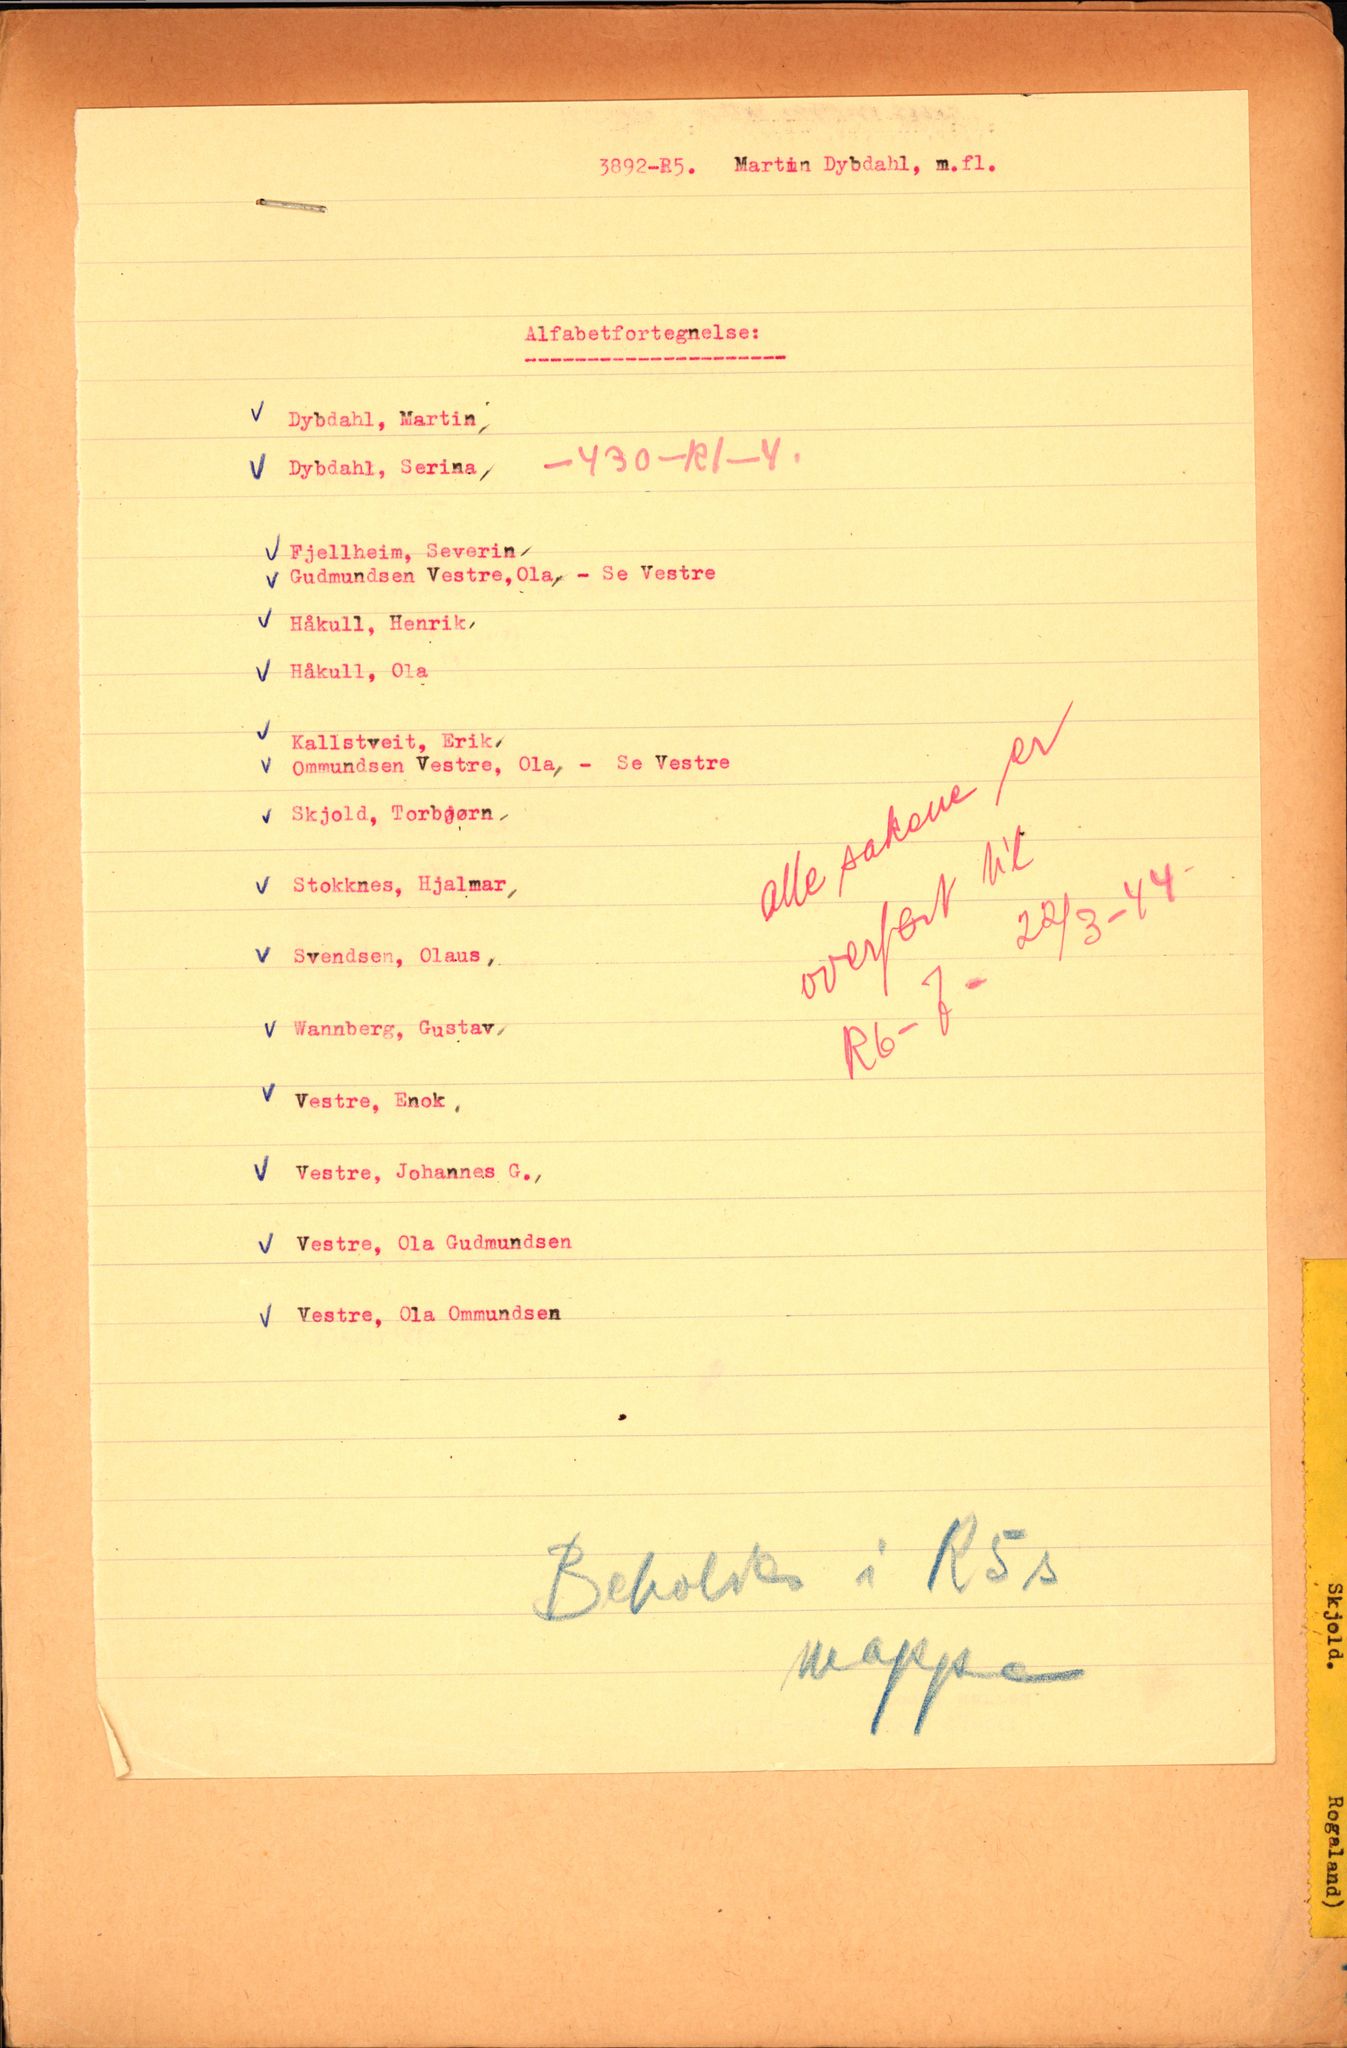 3892-R5. Martin Dybdahl, m.fl.
Alfabetfortegnelse:
✓ Dybdahl, Martin,
✓ Dybdahl, Serina, -430-R1-4.
✓ Fjellheim, Severin,
✓ Gudmundsen Vestre,Ola, - Se Vestre
✓ Håkull, Henrik,
✓ Håkull, Ola
✓ Kallstveit, Erik,
✓ Ommundsen Vestre, Ola, - Se Vestre
✓ Skjold, Torbjørn,
✓ Stokknes, Hjalmar,
✓ Svendsen, Olaus,
✓ Wannberg, Gustav,
✓ Vestre, Enok,
✓ Vestre, Johannes G.,
✓ Vestre, Ola Gudmundsen
✓ Vestre, Ola Ommundsen
alle sakene er
overført til
R6- 22/3-44-
Beholdes i R5s
mappe
Skjold. Rogaland)